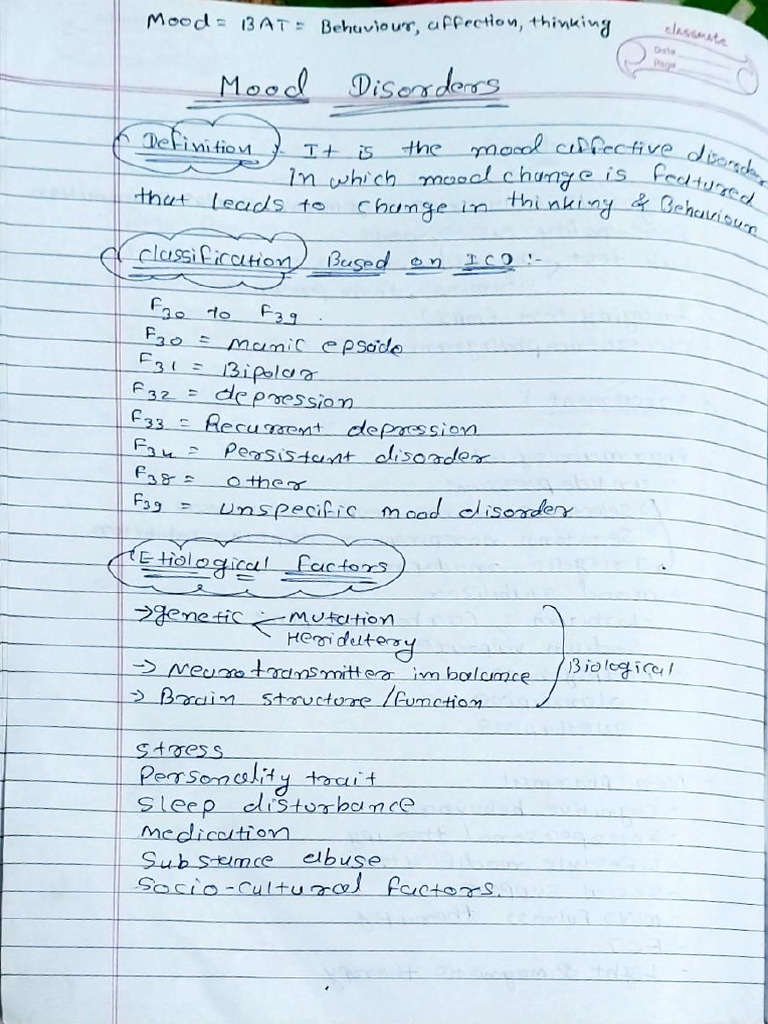 Mood = BAT = Behaviour, affection, thinking
classmate
Date
Page
Mood Disorders
Definition It is the mood affective disorder
In which mood change is featured
that leads to change in thinking & Behaviour
Classification Based on ICD :-
F30 to F39.
F30 = manic epsode
F31 = Bipolar
F32 = depression
F33 = Recurrent depression
F34 = Persistant disorder
F38 = other
F39 = unspecific mood disorder
Etiological factors
→ genetic : Mutation
Heridutery
→ Neurotransmitter imbalance
Biological
→ Brain structure / function
stress
Personality trait
Sleep disturbance
Medication
Substance abuse
Socio-cultural factors.